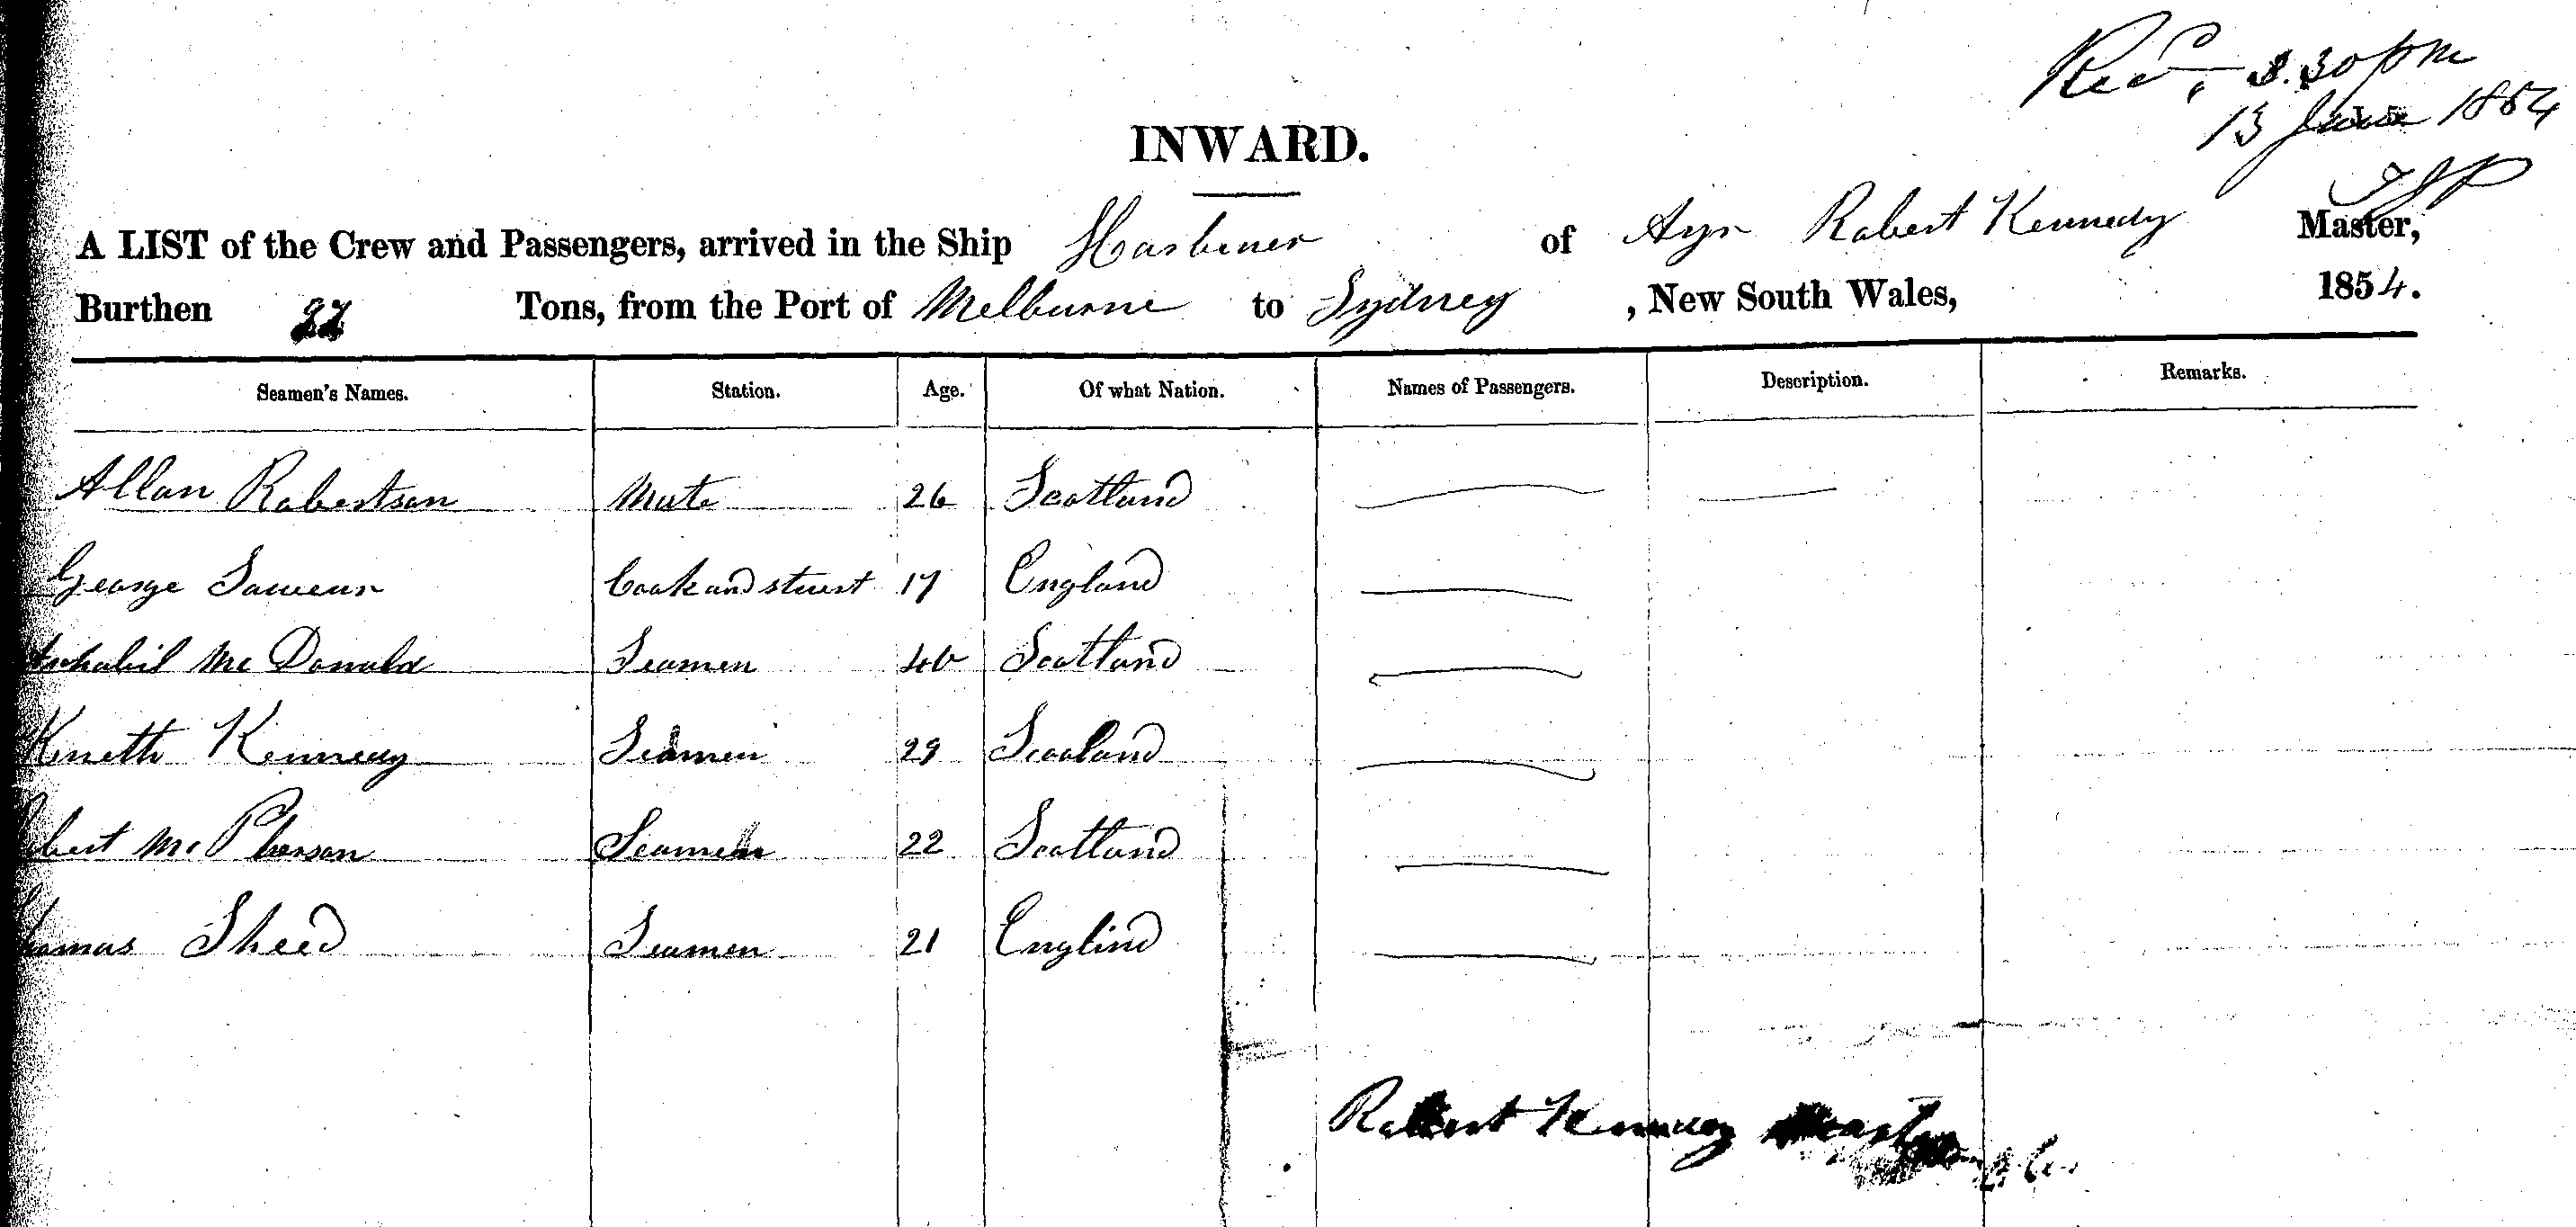 Recd, 3.30 pm
13 June 1854
INWARD.
A LIST of the Crew and Passengers, arrived in the Ship Harbiner of Ayr Robert Kennedy Master,
Burthen Tons, from the Port of Melburne to Sydney , New South Wales, 1854.
Seamen's Names. Station. Age. Of what Nation. Names of Passengers. Description. Remarks.
Allan Robertson Mate 26 Scotland
George Cook and stuert 17 England
McDonald Seamen 40 Scotland
Kenneth Kennedy Seamen 29 Scooland
McPherson Seamen 22 Scotland
Sheed Seamen 21 Englind
Robert Kennedy